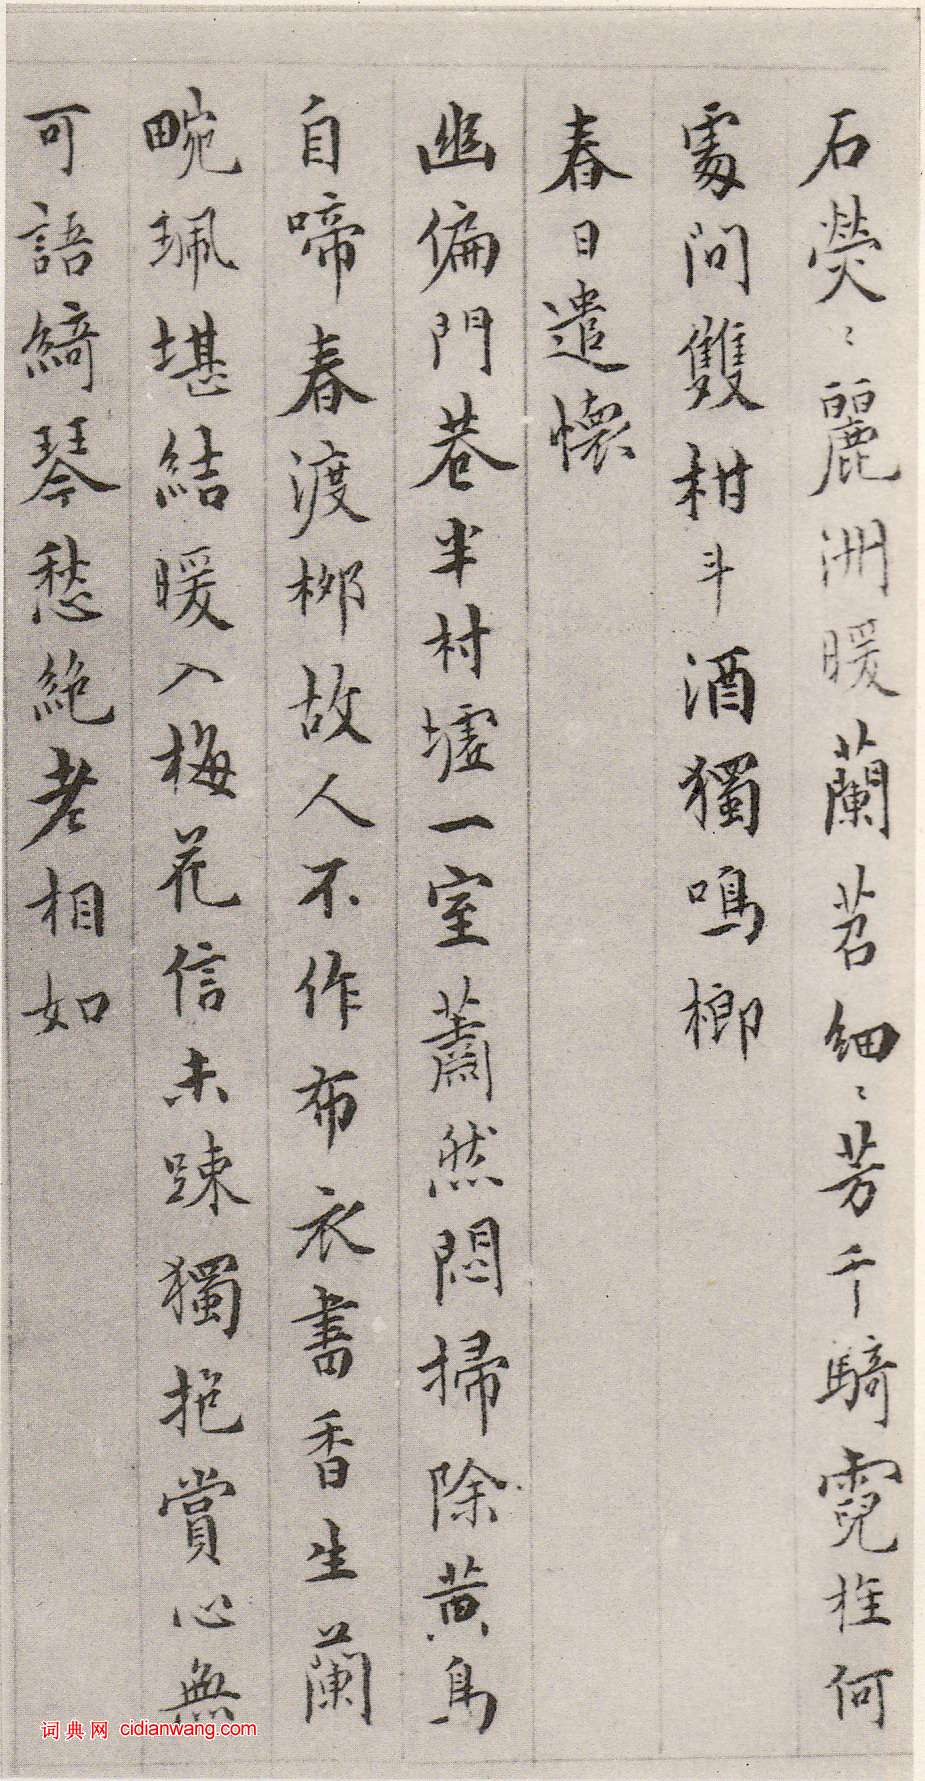 石熒〻麗洲暖蘭苕細〻芳千騎霓旌何
處問雙柑斗酒獨鳴榔
春日遣懷
幽偏門巷半村墟一室蕭然悶掃除黃鳥
自啼春渡柳故人不作布衣書香生蘭
畹珮堪結暖入梅花信未踈獨抱賞心無
可語綺琴愁絕老相如
词典网 cidianwang.com